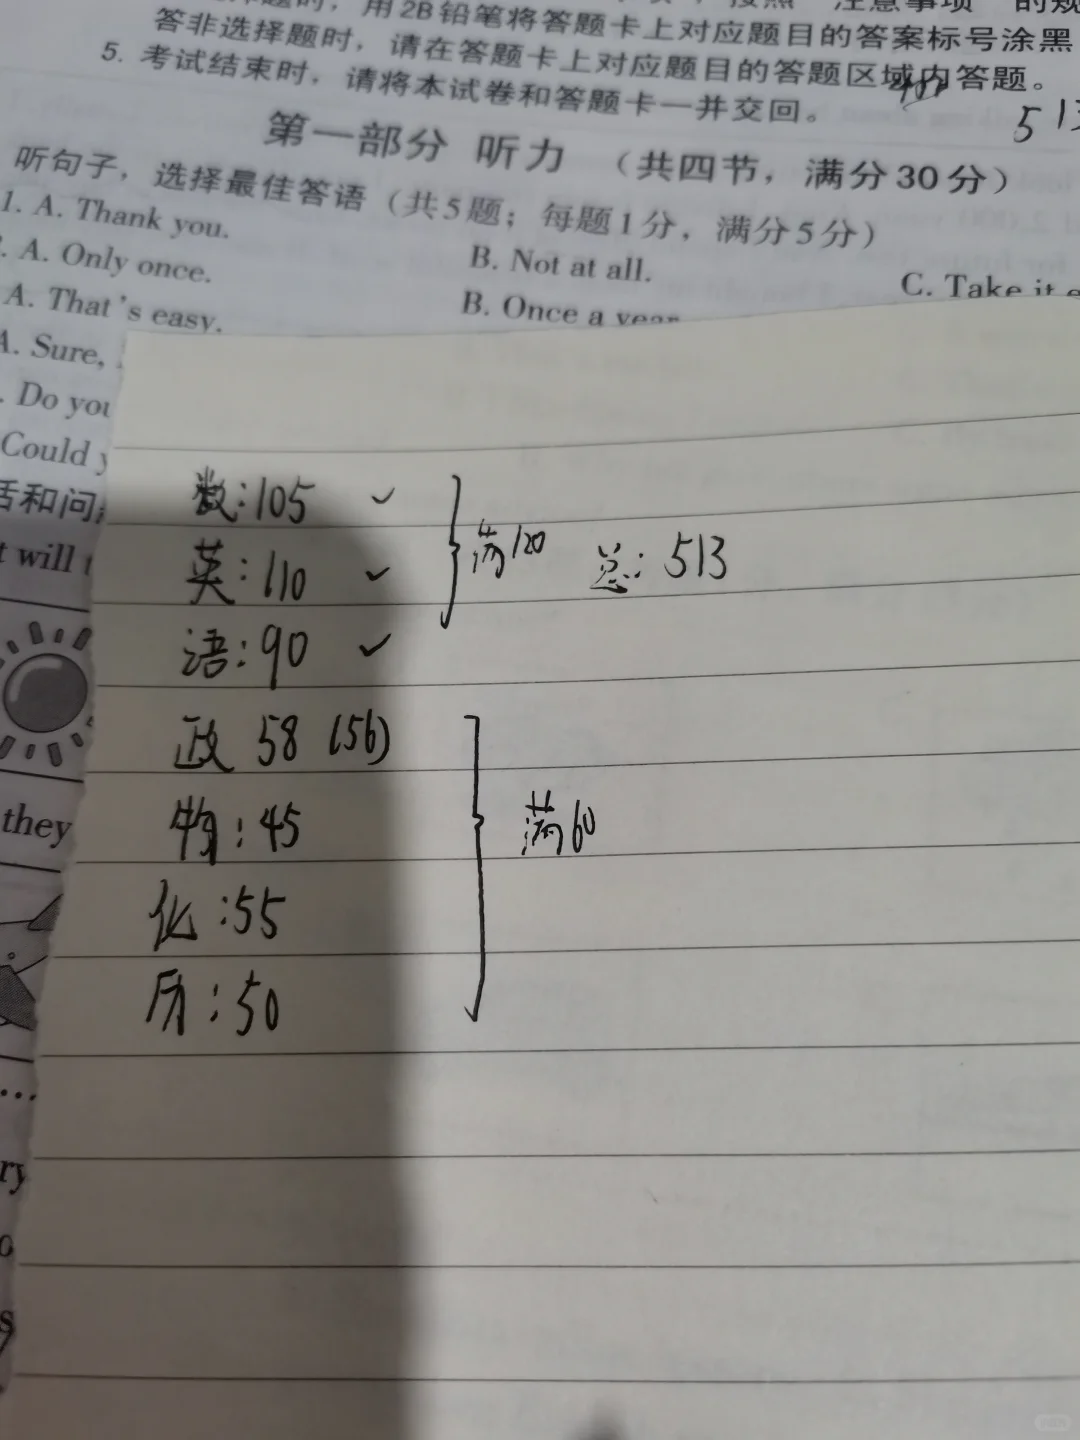 用2B铅笔将答题卡上对应题目的答案标号涂黑
答非选择题时，请在答题卡上对应题目的答题区域内答题。
5. 考试结束时，请将本试卷和答题卡一并交回。
513
第一部分 听力 （共四节，满分30分）
听句子，选择最佳答语（共5题；每题1分，满分5分）
1. A. Thank you.
B. Not at all.
C. Take it e
A. Only once.
B. Once a year
A. That's easy.
A. Sure,
Do you
Could y
话和问
t will t
they
ry
数：105 ✓
英：110 ✓
满120
总：513
语：90 ✓
政 58 (56)
物：45
满60
化：55
历：50